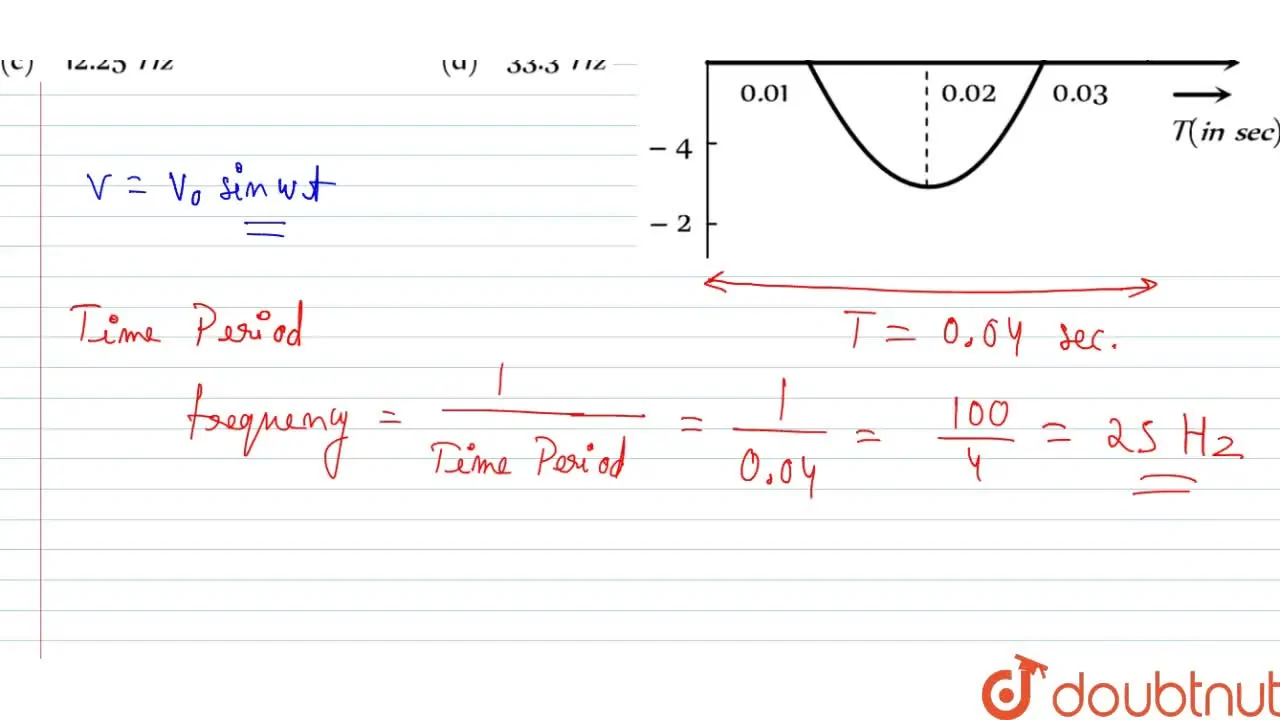 (c) 12.25 Hz (d) 33.3 Hz
0.01 0.02 0.03
T(in sec)
– 4
– 2
V = V₀ sin wt
Time Period
T = 0.04 sec.
frequency = 1 / Time Period = 1 / 0.04 = 100 / 4 = 25 Hz
doubtnut